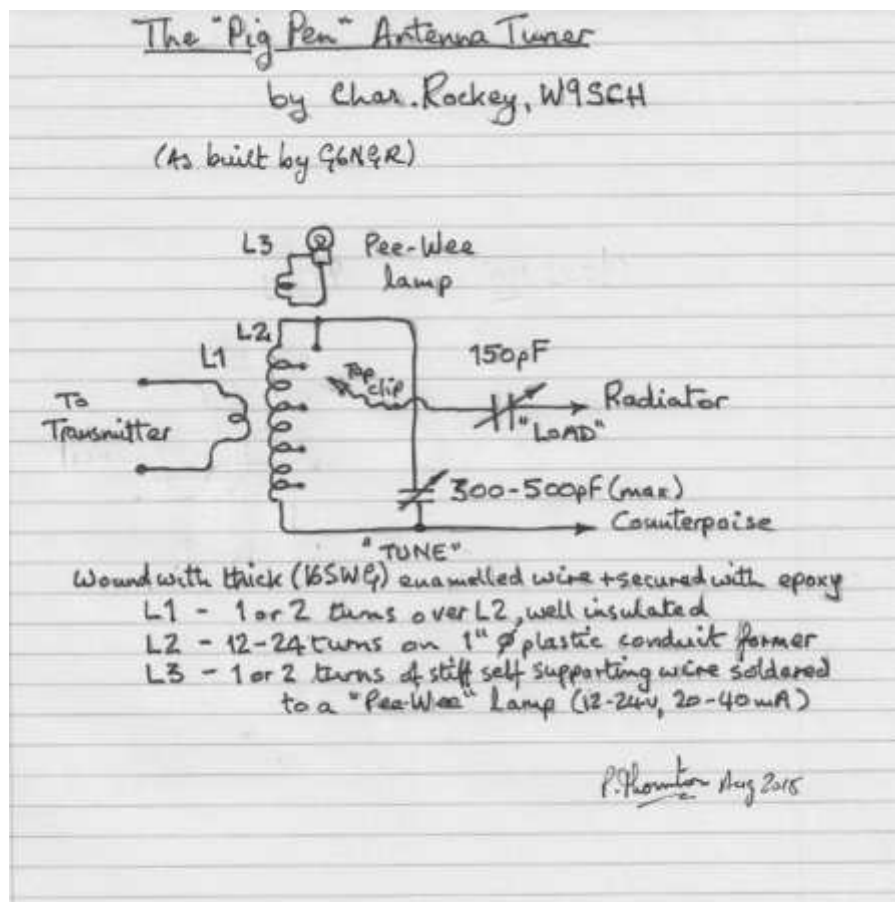 The "Pig Pen" Antenna Tuner
by Char. Rockey, W9SCH
(As built by G6NGR)
L3
Pee-Wee
lamp
L2
L1
150pF
Tap
clip
To
Transmitter
Radiator
"LOAD"
300-500pF (max)
Counterpoise
"TUNE"
Wound with thick (16SWG) enamelled wire + secured with epoxy
L1 - 1 or 2 turns over L2, well insulated
L2 - 12-24 turns on 1" ø plastic conduit former
L3 - 1 or 2 turns of stiff self supporting wire soldered
to a "Pee-Wee" lamp (12-24v, 20-40mA)
P. Thornton Aug